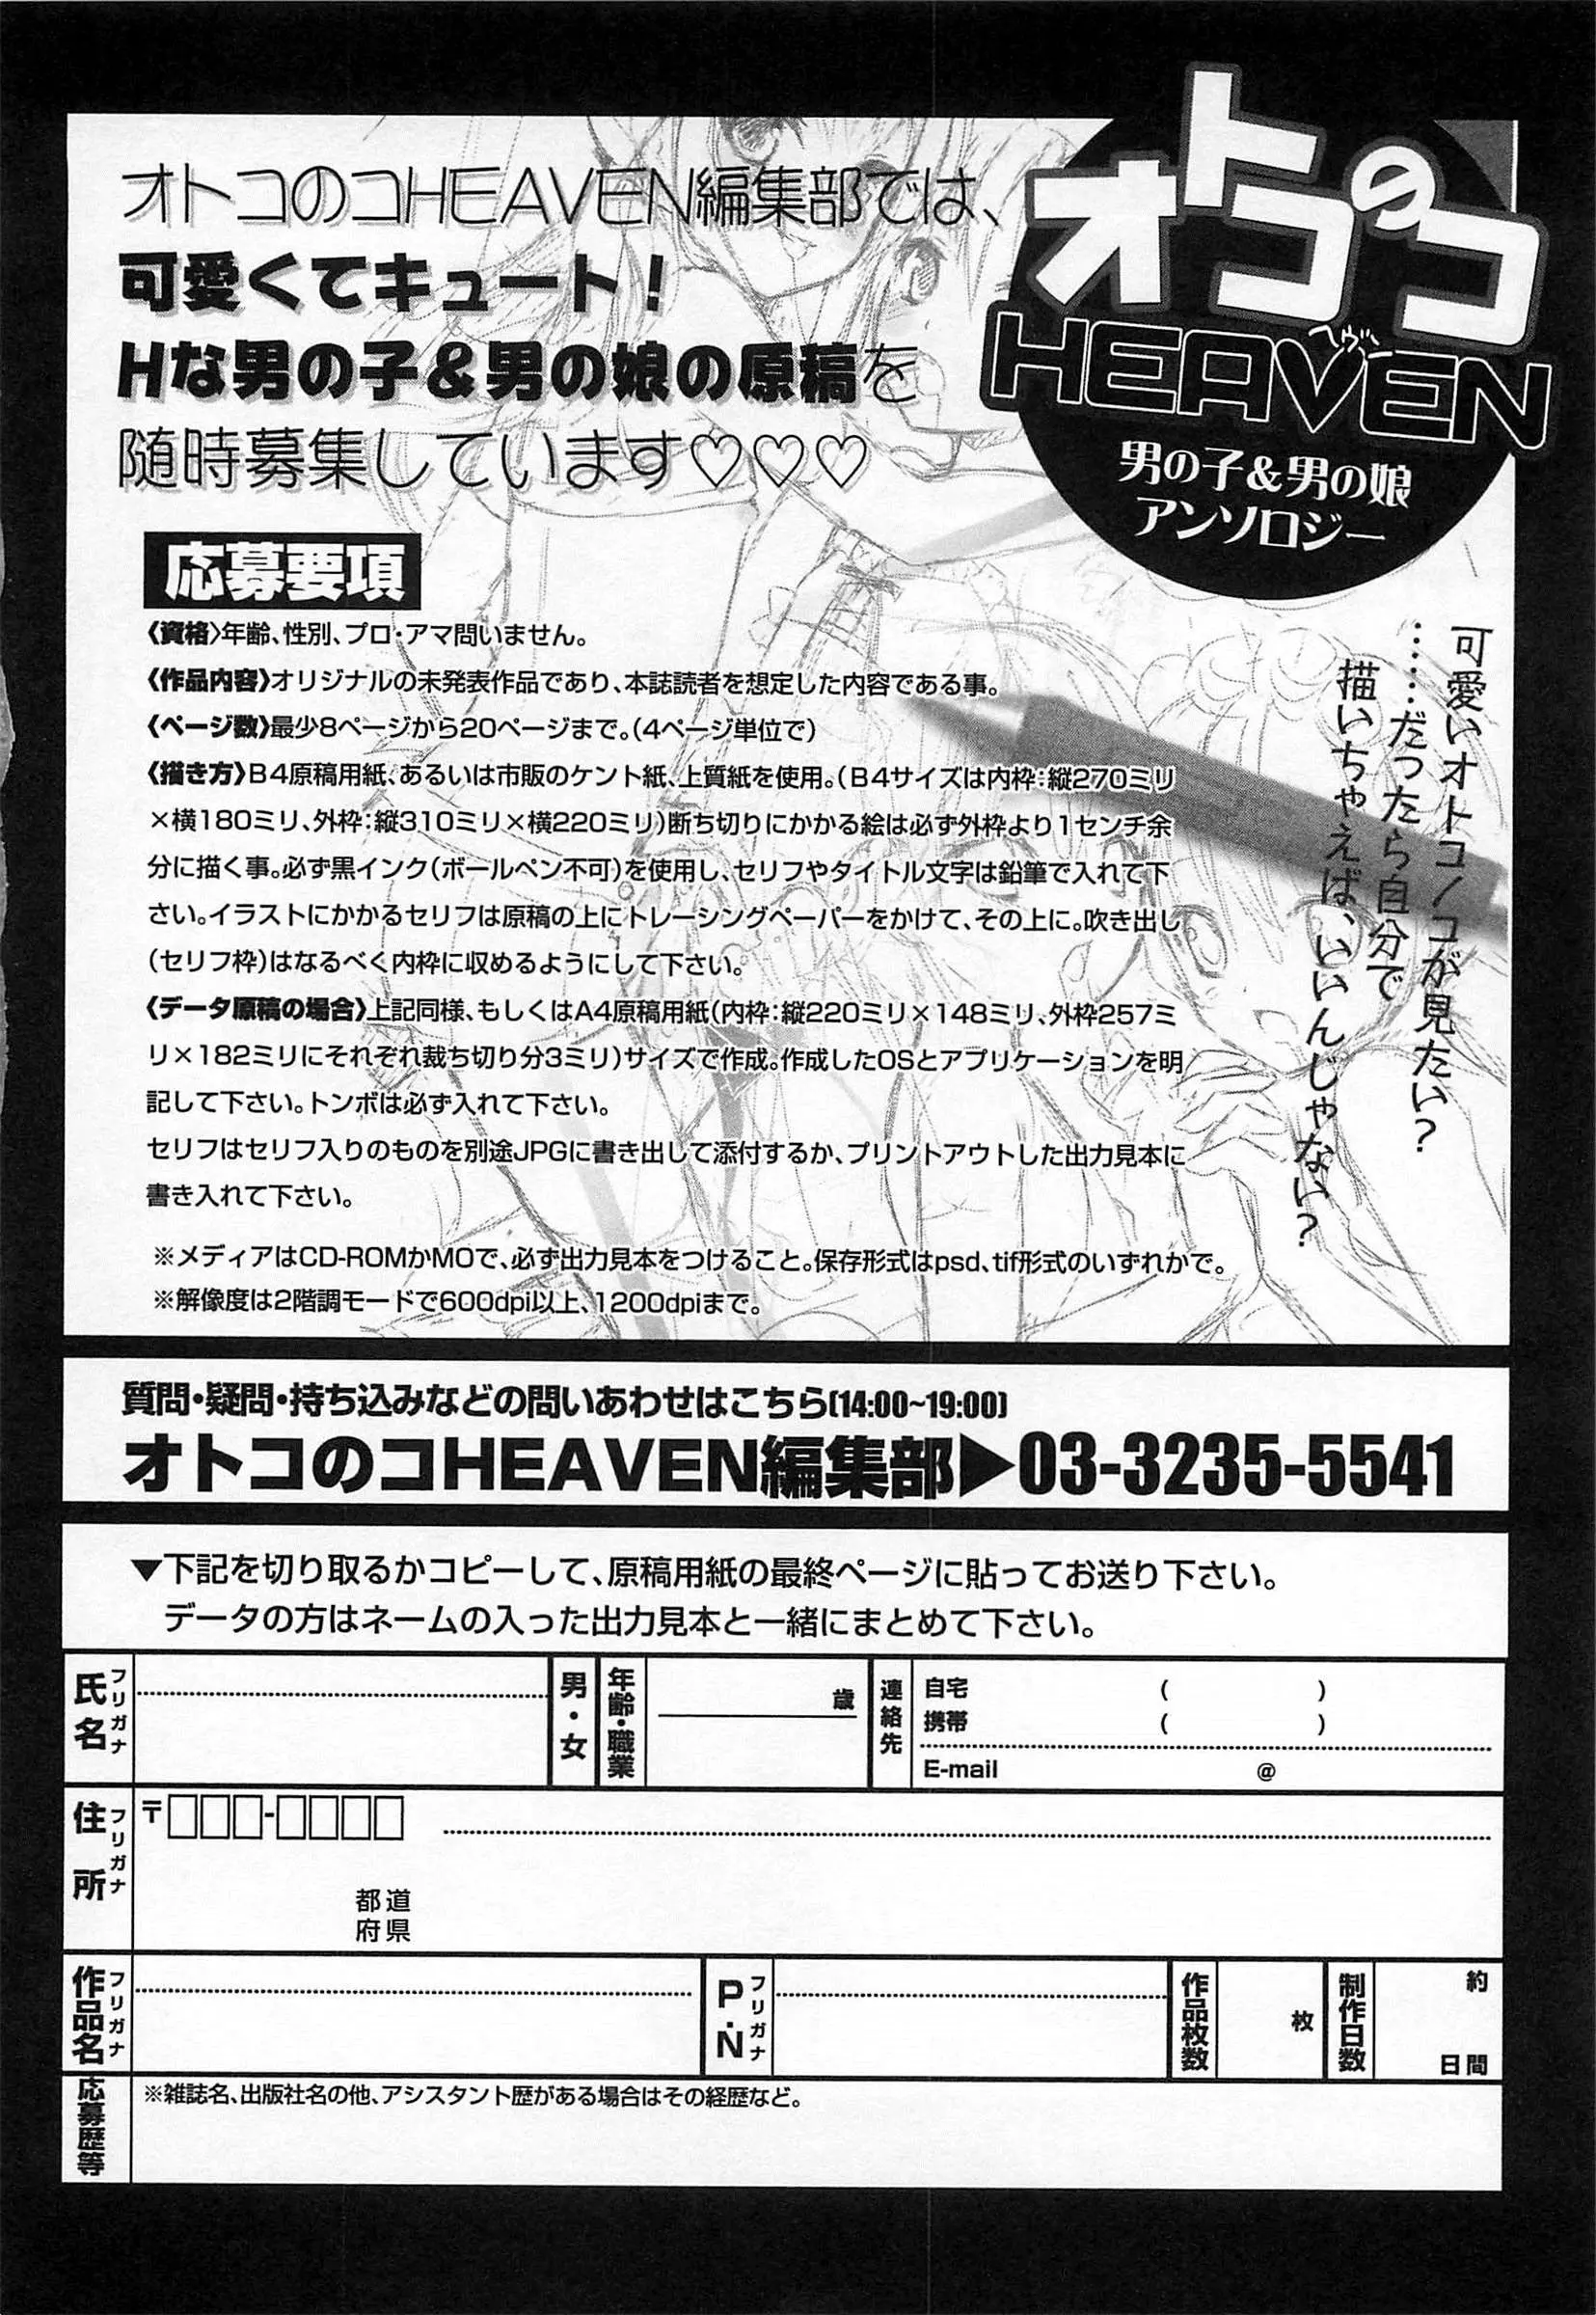 オトコのコHEAVEN編集部では、
可愛くてキュート！
Hな男の子＆男の娘の原稿を
随時募集しています♡♡♡
オトコのコ
HEAVEN
ヘヴン
男の子＆男の娘
アンソロジー
可愛いオトコノコが見たい？
……だったら自分で
描いちゃえば、いいんじゃない？
応募要項
〈資格〉年齢、性別、プロ・アマ問いません。
〈作品内容〉オリジナルの未発表作品であり、本誌読者を想定した内容である事。
〈ページ数〉最少8ページから20ページまで。（4ページ単位で）
〈描き方〉B4原稿用紙、あるいは市販のケント紙、上質紙を使用。（B4サイズは内枠：縦270ミリ
×横180ミリ、外枠：縦310ミリ×横220ミリ）断ち切りにかかる絵は必ず外枠より1センチ余
分に描く事。必ず黒インク（ボールペン不可）を使用し、セリフやタイトル文字は鉛筆で入れて下
さい。イラストにかかるセリフは原稿の上にトレーシングペーパーをかけて、その上に。吹き出し
（セリフ枠）はなるべく内枠に収めるようにして下さい。
〈データ原稿の場合〉上記同様、もしくはA4原稿用紙（内枠：縦220ミリ×148ミリ、外枠257ミ
リ×182ミリにそれぞれ裁ち切り分3ミリ）サイズで作成。作成したOSとアプリケーションを明
記して下さい。トンボは必ず入れて下さい。
セリフはセリフ入りのものを別途JPGに書き出して添付するか、プリントアウトした出力見本に
書き入れて下さい。
※メディアはCD-ROMかMOで、必ず出力見本をつけること。保存形式はpsd、tif形式のいずれかで。
※解像度は2階調モードで600dpi以上、1200dpiまで。
質問・疑問・持ち込みなどの問いあわせはこちら（14:00~19:00）
オトコのコHEAVEN編集部▶03-3235-5541
▼下記を切り取るかコピーして、原稿用紙の最終ページに貼ってお送り下さい。
データの方はネームの入った出力見本と一緒にまとめて下さい。
氏名
フリガナ
男・女
年齢・職業
歳
連絡先
自宅 （ ）
携帯 （ ）
E-mail @
住所
フリガナ
〒□□□-□□□□
都道
府県
作品名
フリガナ
P.N
フリガナ
作品枚数
枚
制作日数
約
日間
応募歴等
※雑誌名、出版社名の他、アシスタント歴がある場合はその経歴など。